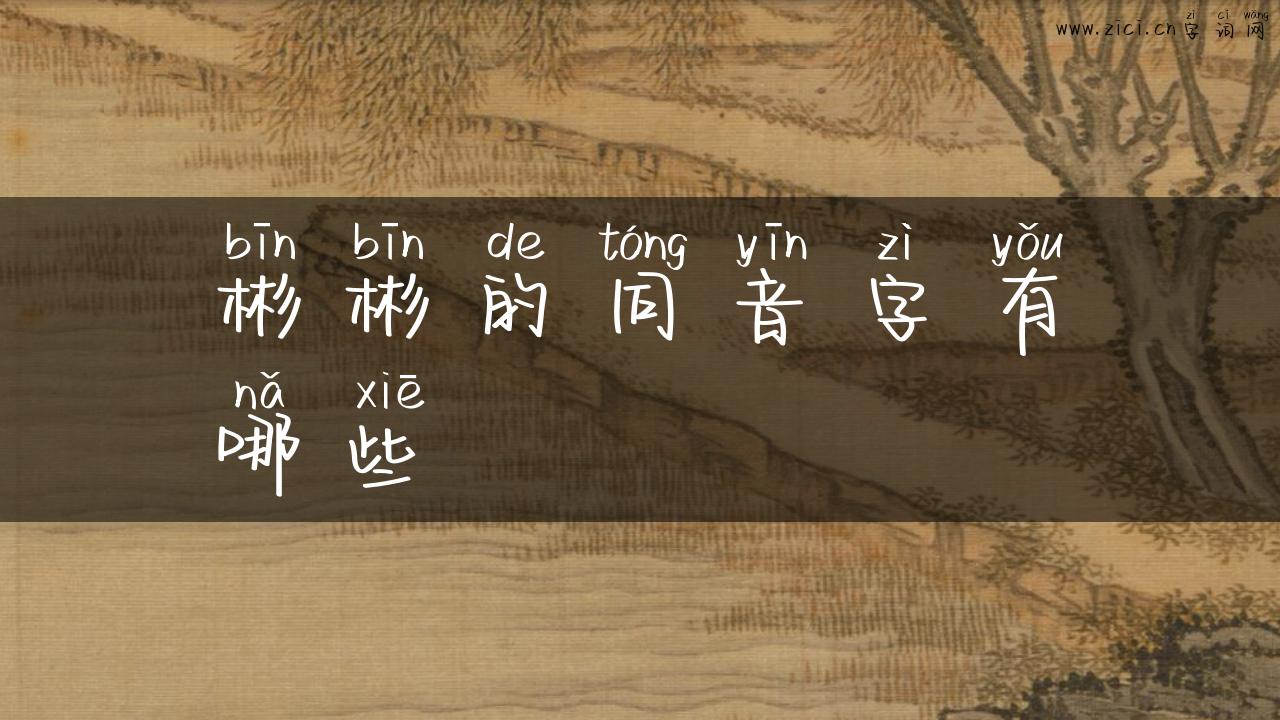 zì cí wǎng
www.zici.cn字词网
bīn bīn de tóng yīn zì yǒu
彬彬的同音字有
nǎ xiē
哪些